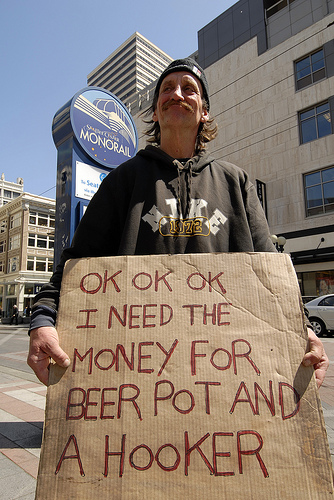 Seattle Center
MONORAIL
NIKE
1972
OK OK OK
I NEED THE
MONEY FOR
BEER POT AND
A HOOKER